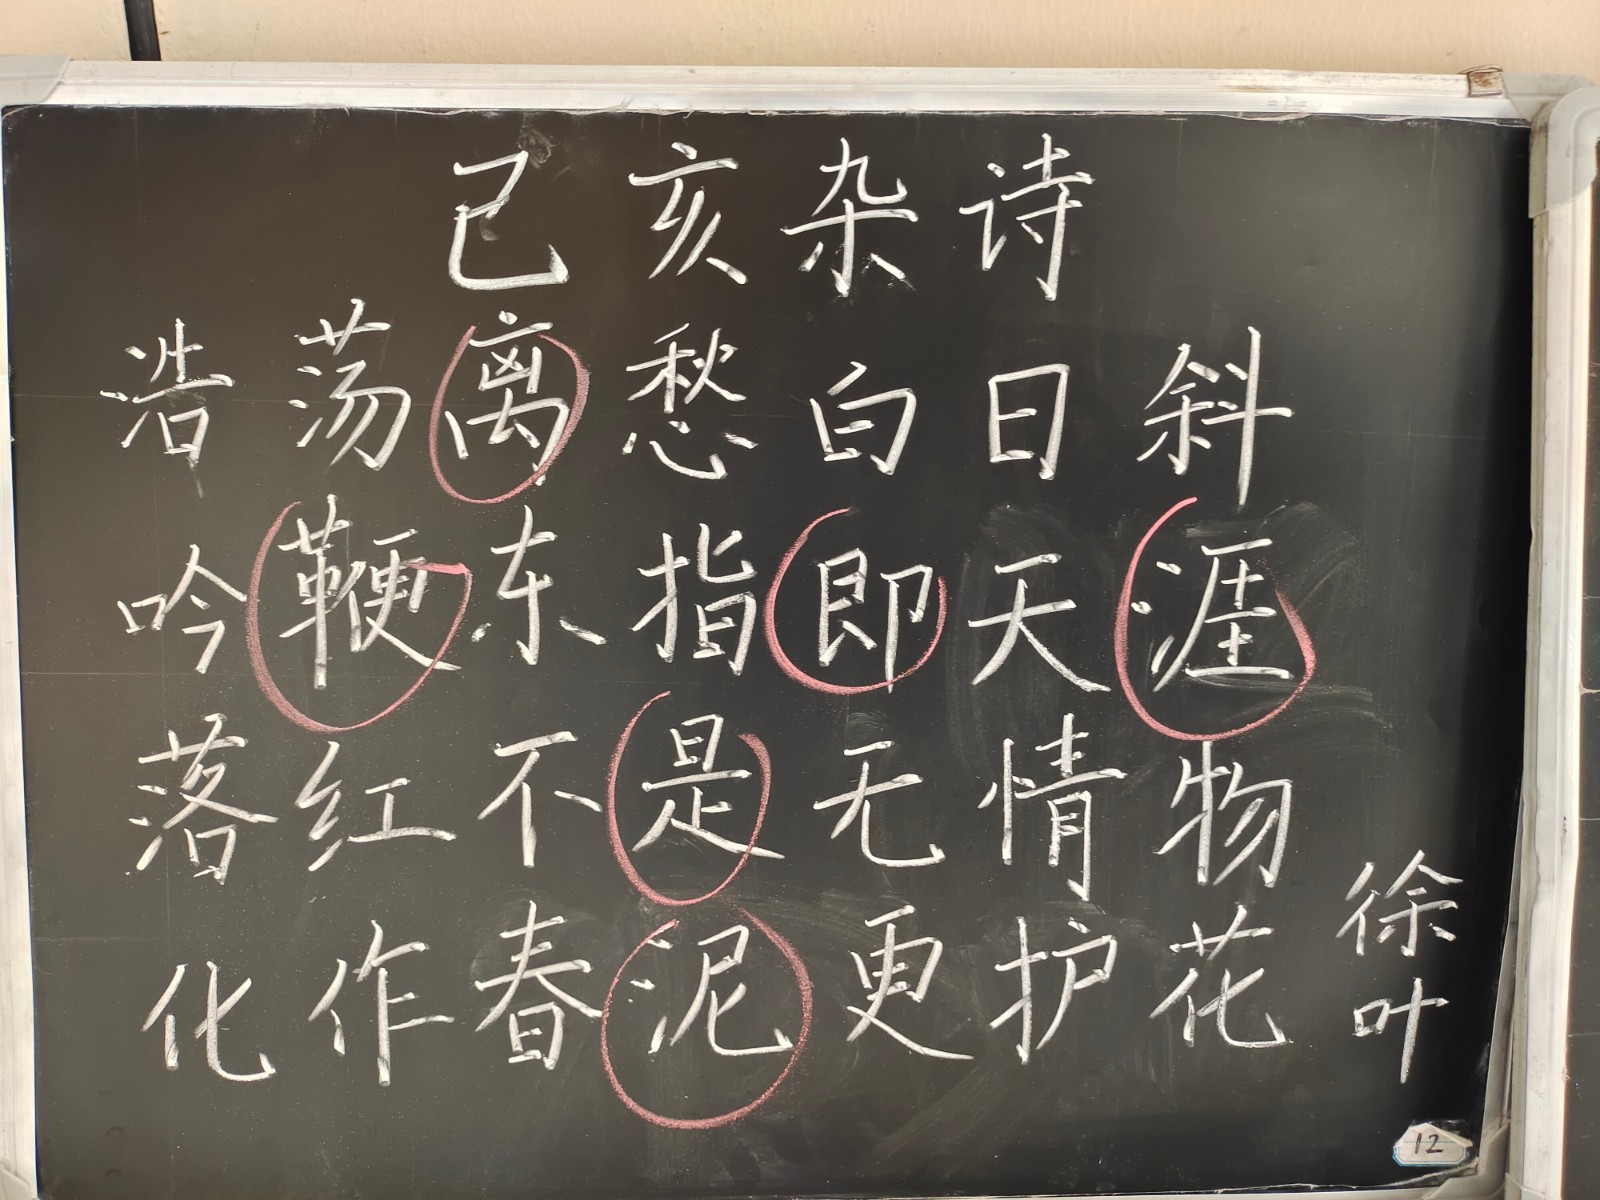 己亥杂诗
浩荡离愁白日斜
吟鞭东指即天涯
落红不是无情物
化作春泥更护花
徐叶
12